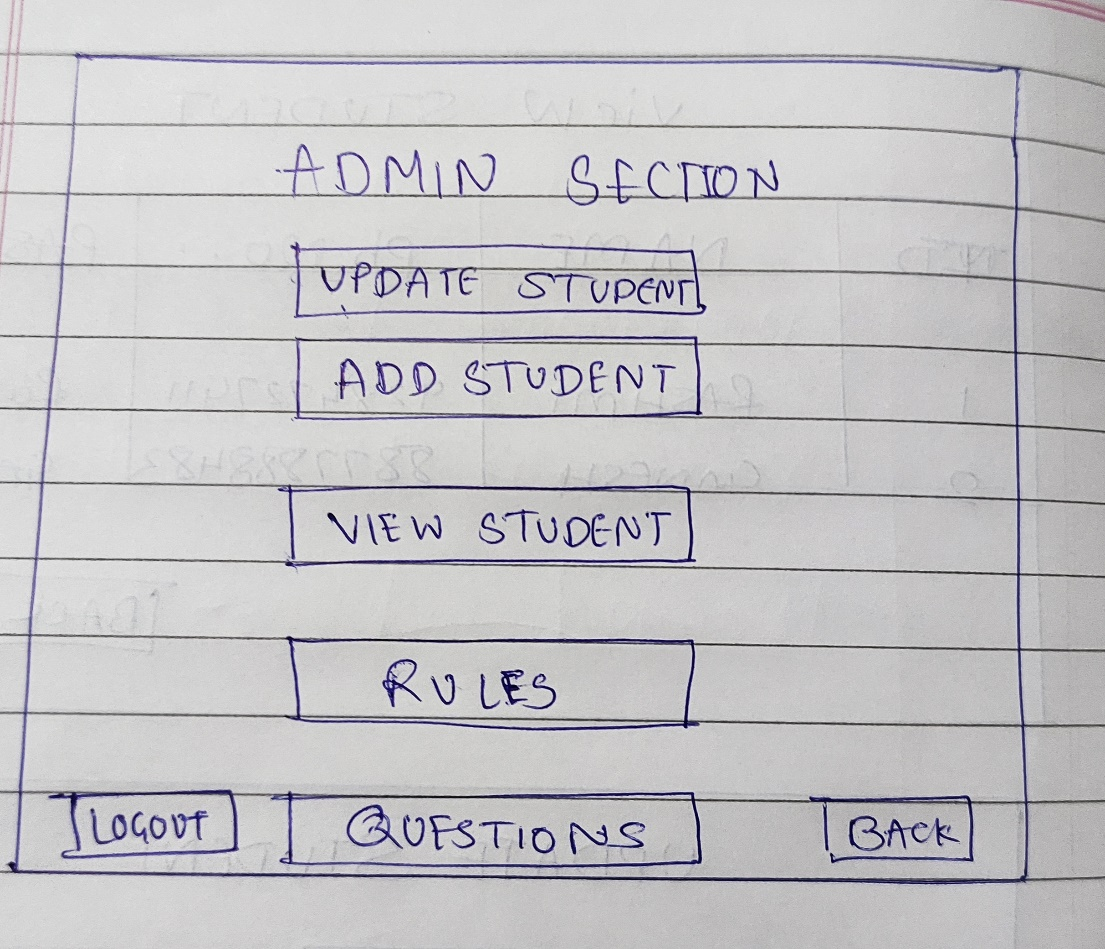 ADMIN SECTION
UPDATE STUDENT
ADD STUDENT
VIEW STUDENT
RULES
LOGOUT QUESTIONS BACK